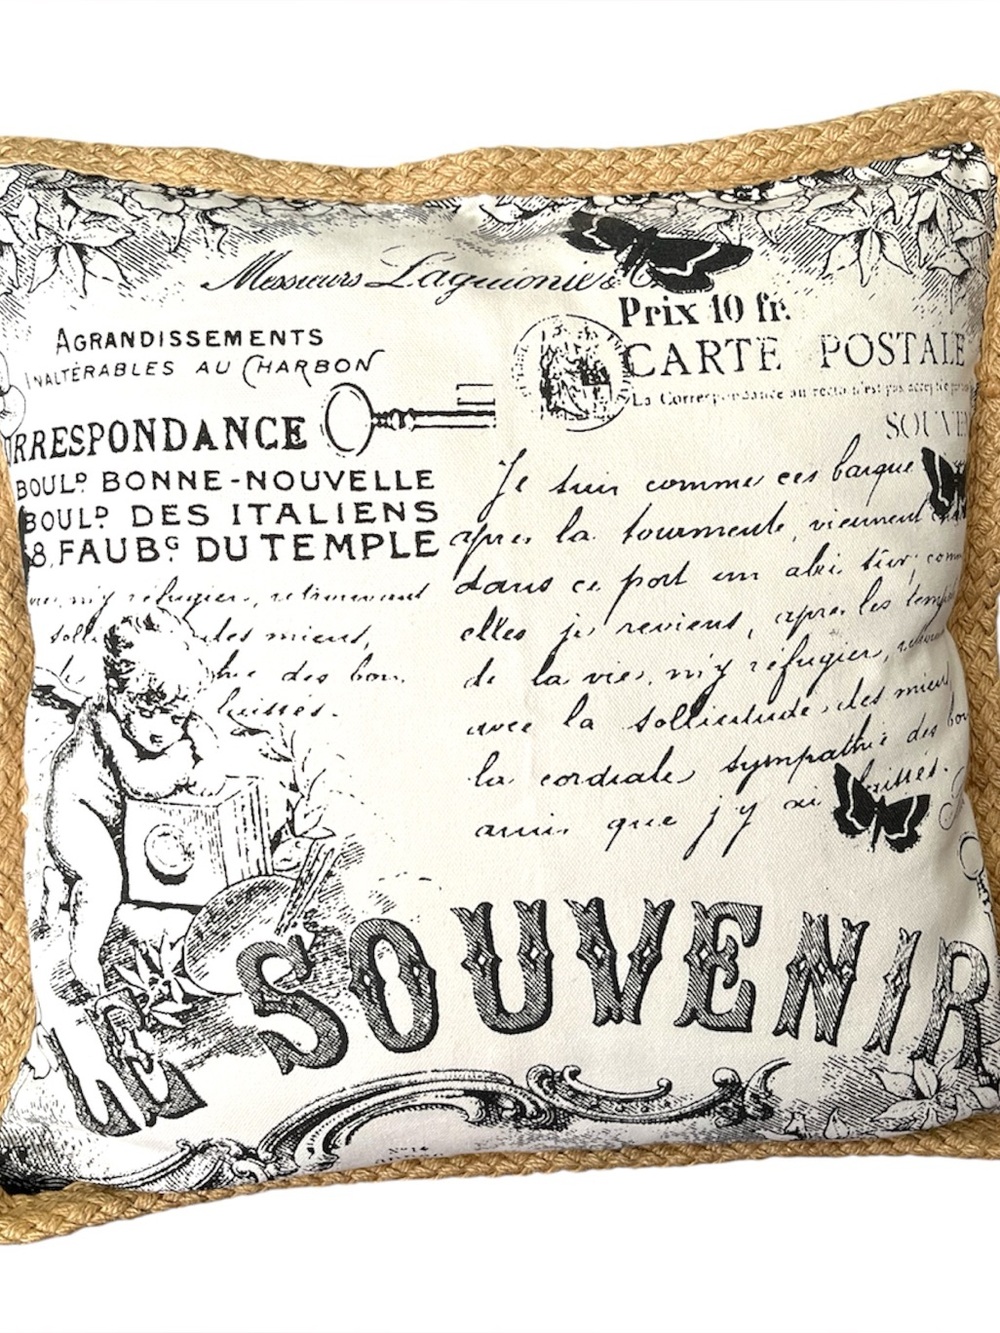 Messieurs Laguionie & C
Prix 10 fr.
CARTE POSTALE
La Correspondance au recto n'est pas acceptée
SOUVEN
AGRANDISSEMENTS
INALTÉRABLES AU CHARBON
RRESPONDANCE
BOULD BONNE-NOUVELLE
BOULD DES ITALIENS
8, FAUBG DU TEMPLE
vie, m'y réfugier, retrouvant
soll des miens,
des bons
laissés.
Je suis comme ces barque
apres la tourmente, viennent
dans ce port un abri sûr; comm
elles je reviens, apres les temp
de la vie, m'y réfugier,
avec la sollicitude des miens
la cordiale sympathie des bon
amis que j'y ai laissés.
LE SOUVENIR
N° 14